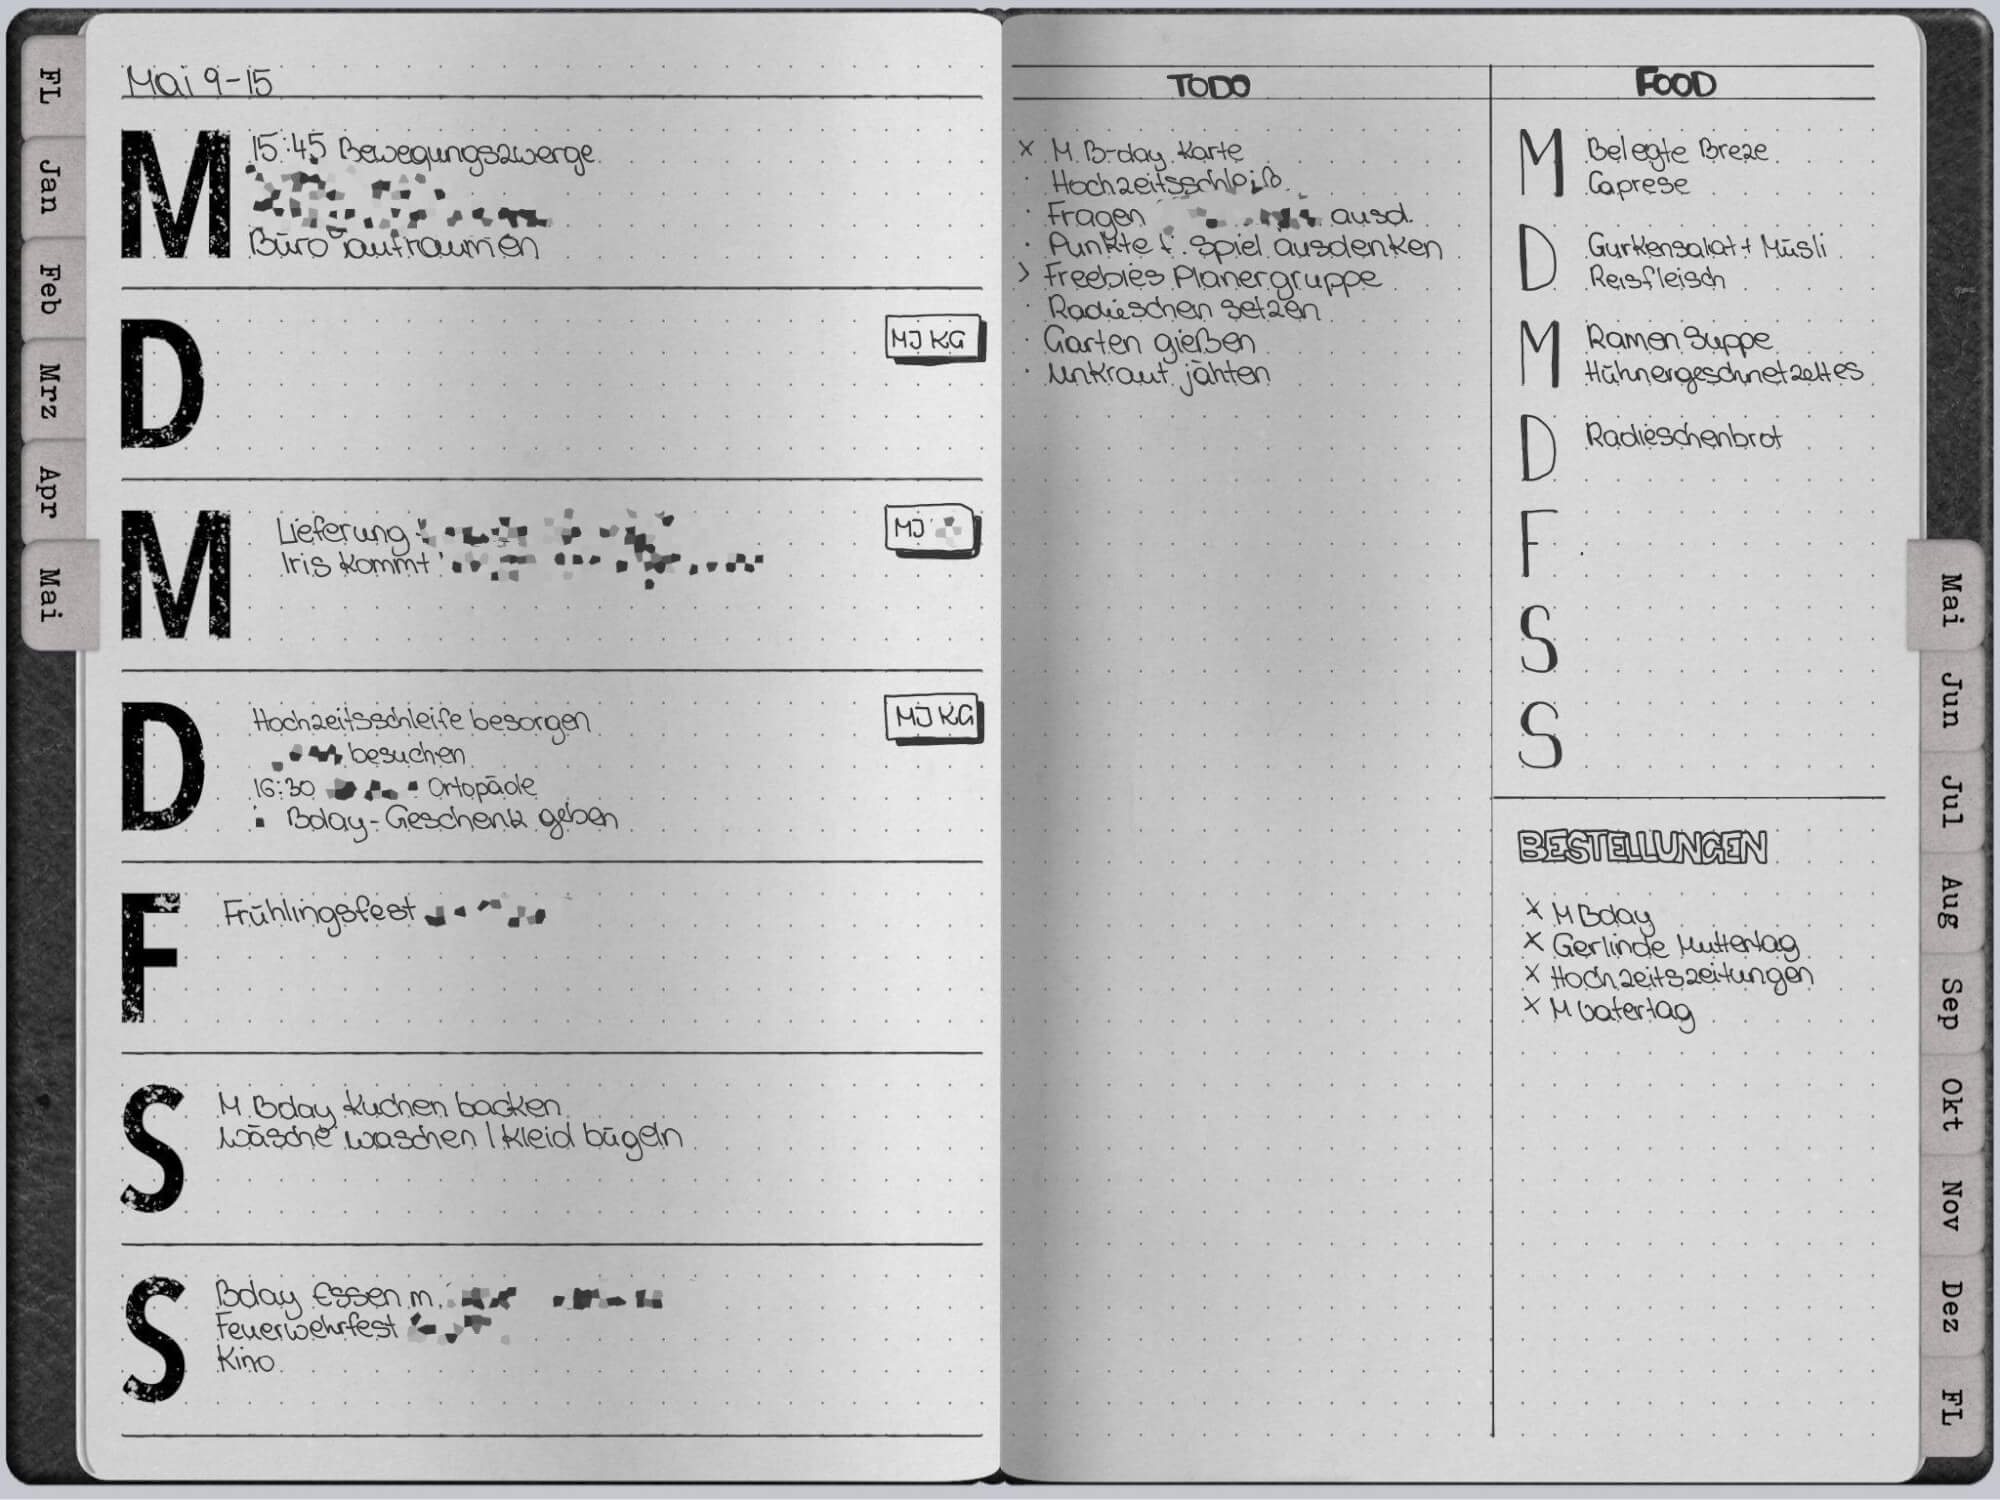 FL
Jan
Feb
Mrz
Apr
Mai
Mai 9-15
M
15:45 Bewegungszwerge
Büro aufräumen
D
MJ KG
M
Lieferung
Iris kommt
MJ
D
Hochzeitsschleife besorgen
besuchen
16:30 Ortopäde
Bday-Geschenk geben
MJ KG
F
Frühlingsfest
S
M Bday Kuchen backen
Wäsche waschen / Kleid bügeln
S
Bday Essen m.
Feuerwehrfest
Kino
TODO
x M B-day Karte
· Hochzeitsschleiß
· Fragen ausd.
· Punkte f. Spiel ausdenken
> Freebies Planergruppe
· Radieschen setzen
· Garten gießen
· Unkraut jähten
FOOD
M Belegte Breze
Caprese
D Gurkensalat + Müsli
Reisfleisch
M Ramen Suppe
Hühnergeschnetzeltes
D Radieschenbrot
F
S
S
BESTELLUNGEN
x M Bday
x Gerlinde Muttertag
x Hochzeitszeitungen
x M Vatertag
Mai
Jun
Jul
Aug
Sep
Okt
Nov
Dez
FL